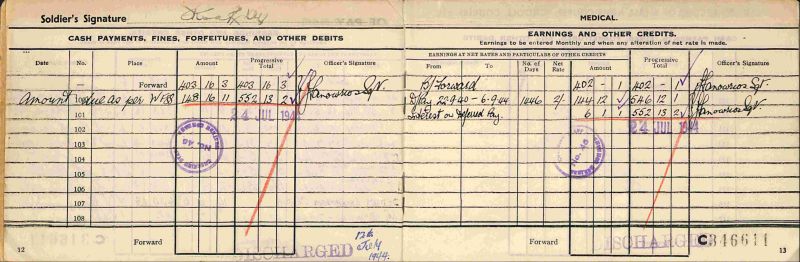 Soldier's Signature
CASH PAYMENTS, FINES, FORFEITURES, AND OTHER DEBITS
Date No. Place Amount Progressive Total Officer's Signature
Forward 403 16 3 403 16 3
Amount 100 due as per 148 16 11 552 13 2
101
24 JUL 1944
102
103
104
105
106
107
108
Forward
12
DISCHARGED
12th July 1944.
MEDICAL.
EARNINGS AND OTHER CREDITS.
Earnings to be entered Monthly and when any alteration of net rate is made.
EARNINGS AT NET RATES AND PARTICULARS OF OTHER CREDITS
From To No. of Days Net Rate Amount Progressive Total Officer's Signature
B/Forward 402 - 1 402 - 1
D/Pay 22-9-40 - 6-9-44 1446 2/- 144 12 546 12 1
Interest on Deferred Pay. 6 1 1 552 13 2
24 JUL 1944
No. 46
Forward
DISCHARGED
C346611
13